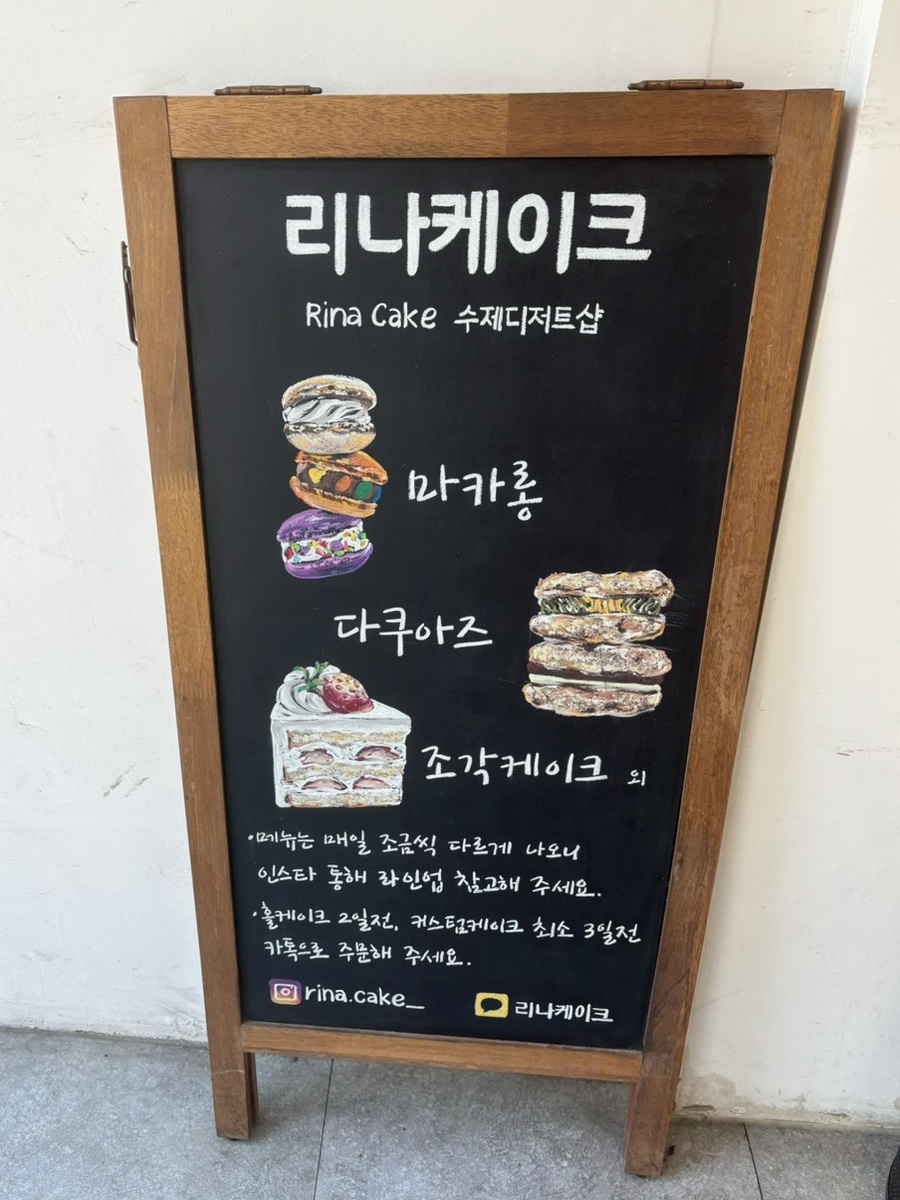 리나케이크
Rina Cake 수제디저트샵
마카롱
다쿠아즈
조각케이크 외
·메뉴는 매일 조금씩 다르게 나오니
인스타 통해 라인업 참고해 주세요.
·홀케이크 2일전, 커스텀케이크 최소 3일전
카톡으로 주문해 주세요.
rina.cake_
리나케이크